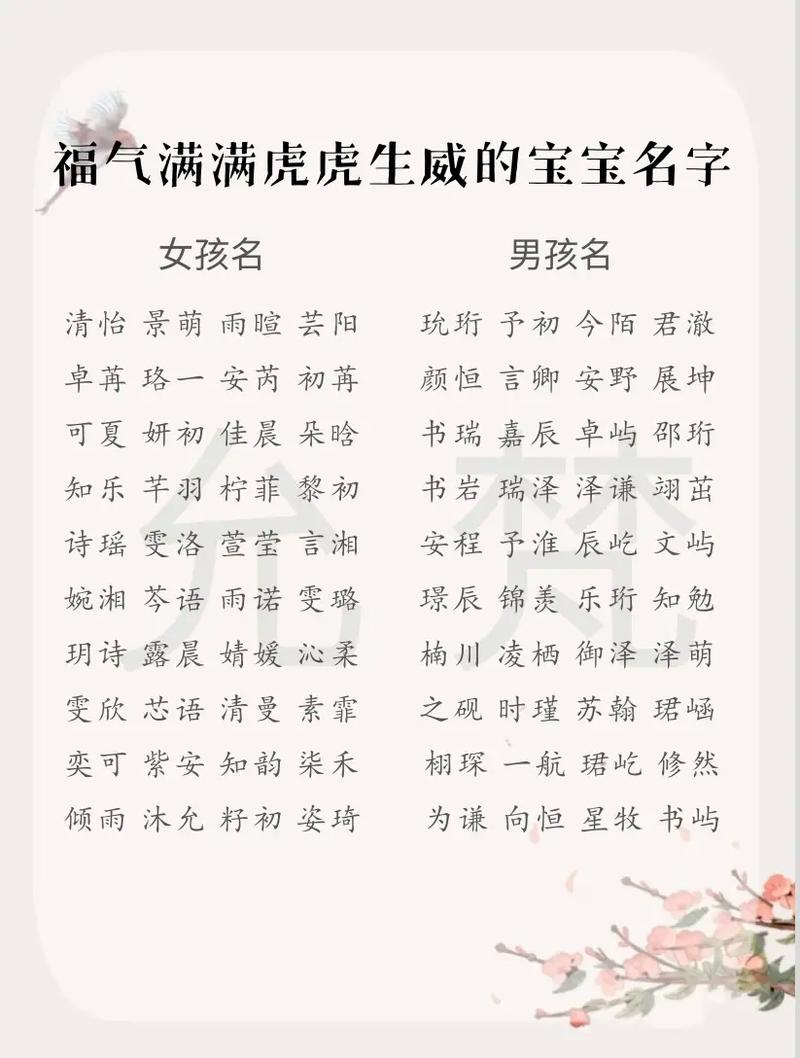 福气满满虎虎生威的宝宝名字
女孩名 男孩名
清怡 景萌 雨暄 芸阳 玧珩 予初 今陌 君澈
卓苒 珞一 安芮 初苒 颜恒 言卿 安野 展坤
可夏 妍初 佳晨 朵晗 书瑞 嘉辰 卓屿 邵珩
知乐 芊羽 柠菲 黎初 书岩 瑞泽 泽谦 翊茁
诗瑶 雯洛 萱莹 言湘 安程 予淮 辰屹 文屿
婉湘 芩语 雨诺 雯璐 璟辰 锦羡 乐珩 知勉
玥诗 露晨 婧媛 沁柔 楠川 凌栖 御泽 泽萌
雯欣 芯语 清曼 素霏 之砚 时瑾 苏翰 珺崡
奕可 紫安 知韵 柒禾 栩琛 一航 珺屹 修然
倾雨 沐允 籽初 姿琦 为谦 向恒 星牧 书屿
允梵